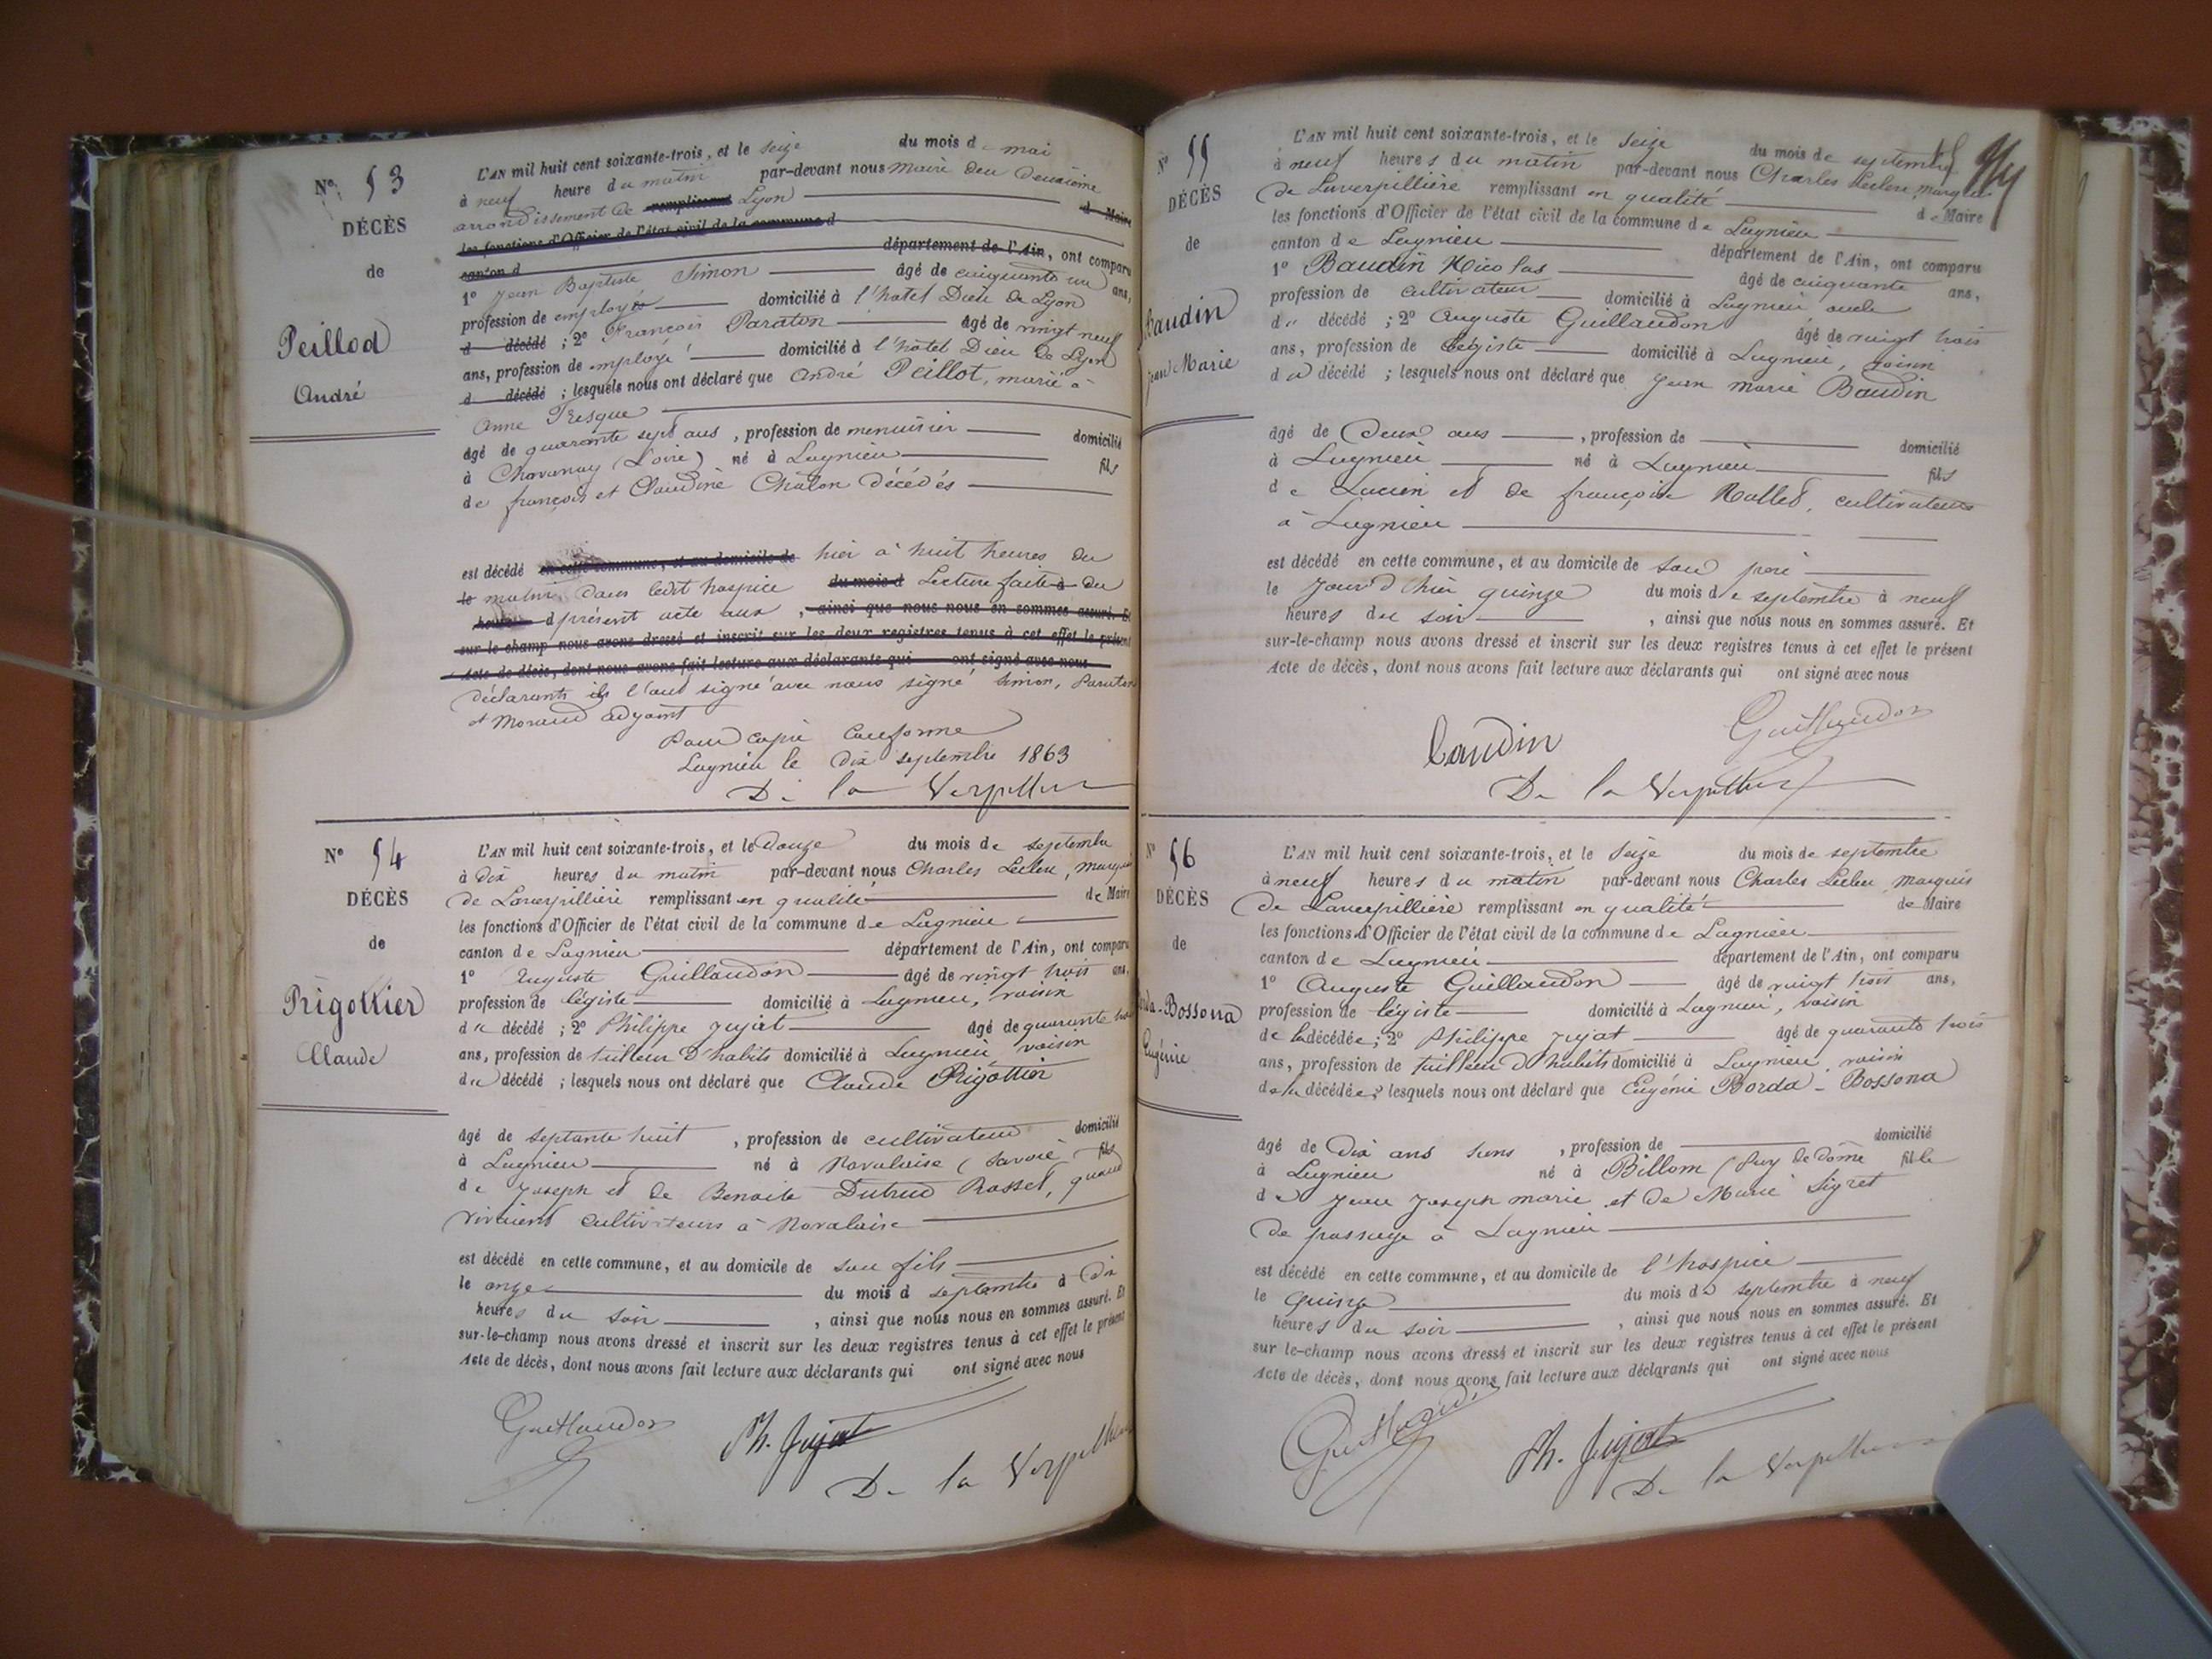 N° 53
DÉCÈS
de
Peillod
André
L'AN mil huit cent soixante-trois, et le seize du mois de mai
à neuf heure du matin par-devant nous maire du deuxième
arrondissement de remplissant Lyon d Maire
les fonctions d'Officier de l'état civil de la commune d
canton d département de l'Ain, ont comparu
1° Jean Baptiste Simon âgé de cinquante un ans,
profession de employé domicilié à l'hotel Dieu de Lyon
d décédé ; 2° François Paraton âgé de vingt neuf
ans, profession de employé domicilié à l'hotel Dieu de Lyon
d décédé ; lesquels nous ont déclaré que André Peillot, marié à
Anne Fresque
âgé de quarante sept ans , profession de menuisier domicilié
à Chavanay (Loire) né à Lagnieu fils
de françois et Claudine Chalon décédés
est décédé en cette commune, et au domicile de hier à huit heures du
le matin dans ledit hospice du mois d Lecture faite à du
heures d présent acte aux , ainsi que nous nous en sommes assuré. Et
sur-le-champ nous avons dressé et inscrit sur les deux registres tenus à cet effet le présent
Acte de décès, dont nous avons fait lecture aux déclarants qui ont signé avec nous
déclarants ils l'ont signé avec nous signé Simon, Paraton
et Morand adjoint
Pour copie conforme
Lagnieu le dix septembre 1863
De la Verpillière
N° 54
DÉCÈS
de
Rigottier
Claude
L'AN mil huit cent soixante-trois, et le douze du mois de septembre
à dix heures du matin par-devant nous Charles Leclerc, marquis
de Laverpillière remplissant en qualité de Maire
les fonctions d'Officier de l'état civil de la commune de Lagnieu
canton de Lagnieu département de l'Ain, ont comparu
1° Auguste Guillaudon âgé de vingt trois ans,
profession de légiste domicilié à Lagnieu, voisin
du décédé ; 2° Philippe Jujat âgé de quarante trois
ans, profession de tailleur d'habits domicilié à Lagnieu, voisin
du décédé ; lesquels nous ont déclaré que Claude Rigottier
âgé de septante huit , profession de cultivateur domicilié
à Lagnieu né à Novalaise (Savoie) fils
de Joseph et de Benoite Dutrud Rosset, quand
vivaient cultivateurs à Novalaise
est décédé en cette commune, et au domicile de son fils
le onze du mois d septembre à dix
heures du soir , ainsi que nous nous en sommes assuré. Et
sur-le-champ nous avons dressé et inscrit sur les deux registres tenus à cet effet le présent
Acte de décès, dont nous avons fait lecture aux déclarants qui ont signé avec nous
Guillaudon
Ph. Jujat
De la Verpillière
N° 55
DÉCÈS
de
Baudin
Jean Marie
L'AN mil huit cent soixante-trois, et le seize du mois de septembre
à neuf heures du matin par-devant nous Charles Leclerc, marquis
de Laverpillière remplissant en qualité de Maire
les fonctions d'Officier de l'état civil de la commune de Lagnieu
canton de Lagnieu département de l'Ain, ont comparu
1° Baudin Nicolas âgé de cinquante ans,
profession de cultivateur domicilié à Lagnieu, oncle
du décédé ; 2° Auguste Guillaudon âgé de vingt trois
ans, profession de légiste domicilié à Lagnieu, voisin
du décédé ; lesquels nous ont déclaré que Jean marie Baudin
âgé de Deux ans , profession de domicilié
à Lagnieu né à Lagnieu fils
de Lucien et de françoise Rollet, cultivateurs
à Lagnieu
est décédé en cette commune, et au domicile de son père
le Jour d'hier quinze du mois de septembre à neuf
heures du soir , ainsi que nous nous en sommes assuré. Et
sur-le-champ nous avons dressé et inscrit sur les deux registres tenus à cet effet le présent
Acte de décès, dont nous avons fait lecture aux déclarants qui ont signé avec nous
baudin
Guillaudon
De la Verpillière
N° 56
DÉCÈS
de
Borda-Bossona
Eugénie
L'AN mil huit cent soixante-trois, et le seize du mois de septembre
à neuf heures du matin par-devant nous Charles Leclerc, marquis
de Laverpillière remplissant en qualité de Maire
les fonctions d'Officier de l'état civil de la commune de Lagnieu
canton de Lagnieu département de l'Ain, ont comparu
1° Auguste Guillaudon âgé de vingt trois ans,
profession de légiste domicilié à Lagnieu, voisin
de la décédée ; 2° Philippe Jujat âgé de quarante trois
ans, profession de tailleur d'habits domicilié à Lagnieu, voisin
de la décédée ; lesquels nous ont déclaré que Eugénie Borda-Bossona
âgé de Dix ans sans , profession de domicilié
à Lagnieu né à Billom (Puy de dôme fille
de Jean Joseph marie et de Marie Sigret
de passage à Lagnieu
est décédé en cette commune, et au domicile de l'hospice
le quinze du mois de septembre à neuf
heures du soir , ainsi que nous nous en sommes assuré. Et
sur le-champ nous avons dressé et inscrit sur les deux registres tenus à cet effet le présent
Acte de décès, dont nous avons fait lecture aux déclarants qui ont signé avec nous
Guillaudon
Ph. Jujat
De la Verpillière